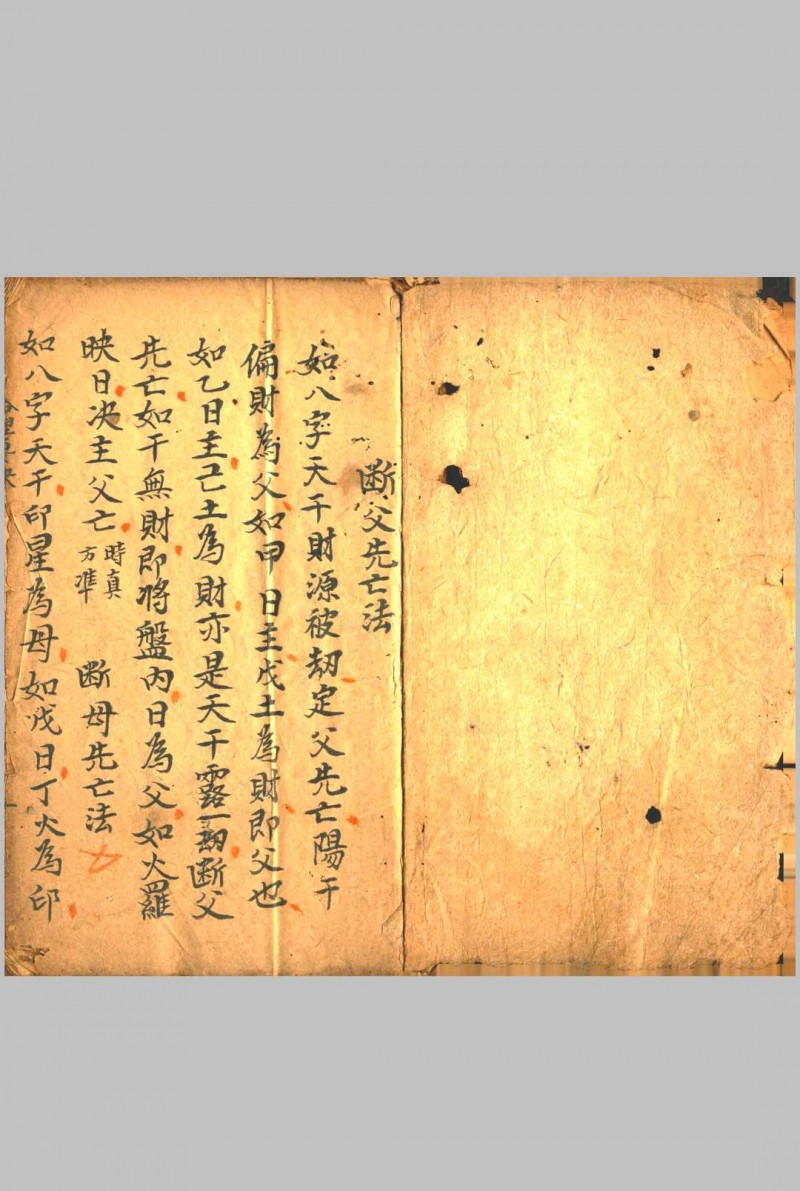 断父先亡法
如八字天干財源被刼定父先亡陽干
偏財為父如甲日主戊土為財即父也
如乙日主己土為財亦是天干露一刼断父
先亡如干無財即将盤内日為父如火羅
映日决主父亡時真方準 断母先亡法
如八字天干印星為母如戊日丁火為印